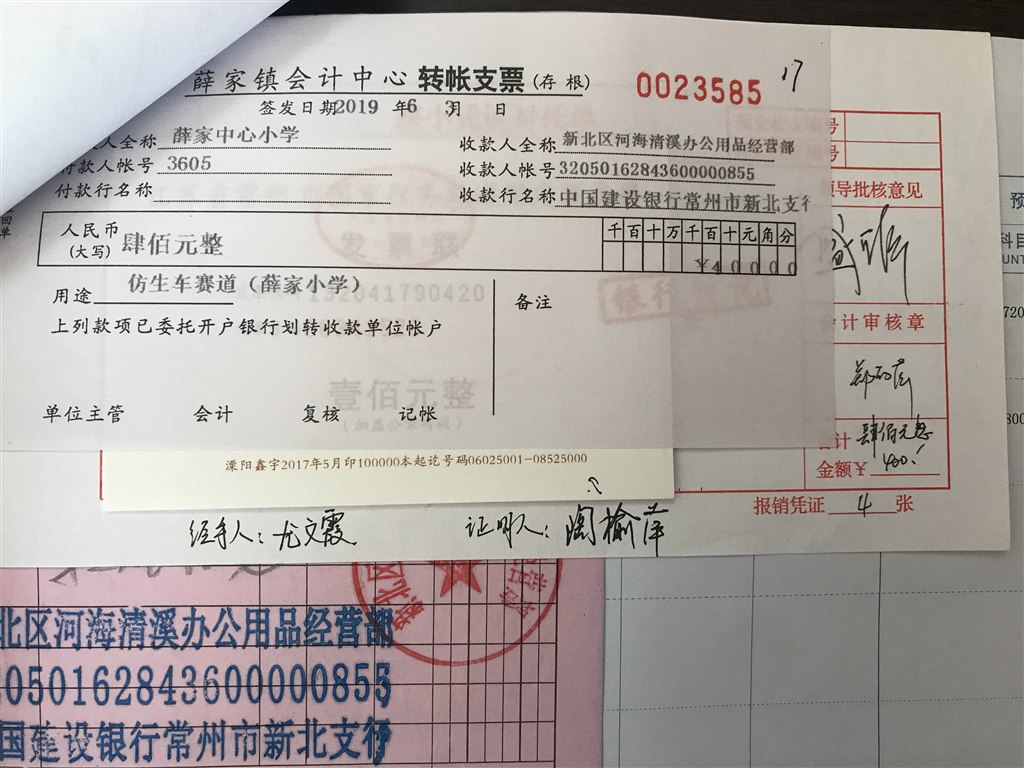 薛家镇会计中心 转帐支票(存根) 0023585 17
签发日期2019 年6 3月 日
人全称 薛家中心小学 收款人全称 新北区河海清溪办公用品经营部
付款人帐号 3605 收款人帐号 32050162843600000855
付款行名称 收款行名称 中国建设银行常州市新北支行
人民币(大写) 肆佰元整 千百十万千百十元角分
¥40000
用途 仿生车赛道(薛家小学) 备注
上列款项已委托开户银行划转收款单位帐户
单位主管 会计 复核 记帐
号
号
领导批核意见
会计审核章
合计 肆佰元整
金额¥ 400.
报销凭证 4 张
发票联
132041790420
银行
壹佰元整
溧阳鑫宇2017年5月印100000本起讫号码06025001-08525000
经手人:尤文霞 证明人:陶榆萍
回单
预
科目
UNT
720
800
新北区
北区河海清溪办公用品经营部
2050162843600000855
国建设银行常州市新北支行